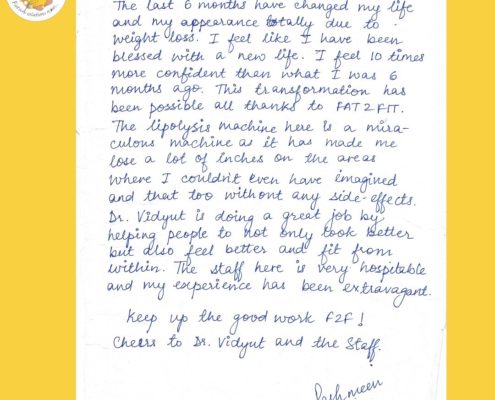 The last 6 months have changed my life
and my appearance totally due to
weight loss. I feel like I have been
blessed with a new life. I feel 10 times
more confident than what I was 6
months ago. This transformation has
been possible all thanks to FAT2FIT.
The lipolysis machine here is a mira-
culous machine as it has made me
lose a lot of inches on the areas
where I couldn't even have imagined
and that too without any side-effects.
Dr. Vidyut is doing a great job by
helping people to not only look better
but also feel better and fit from
within. The staff here is very hospitable
and my experience has been extravagant.
Keep up the good work F2F!
Cheers to Dr. Vidyut and the Staff.